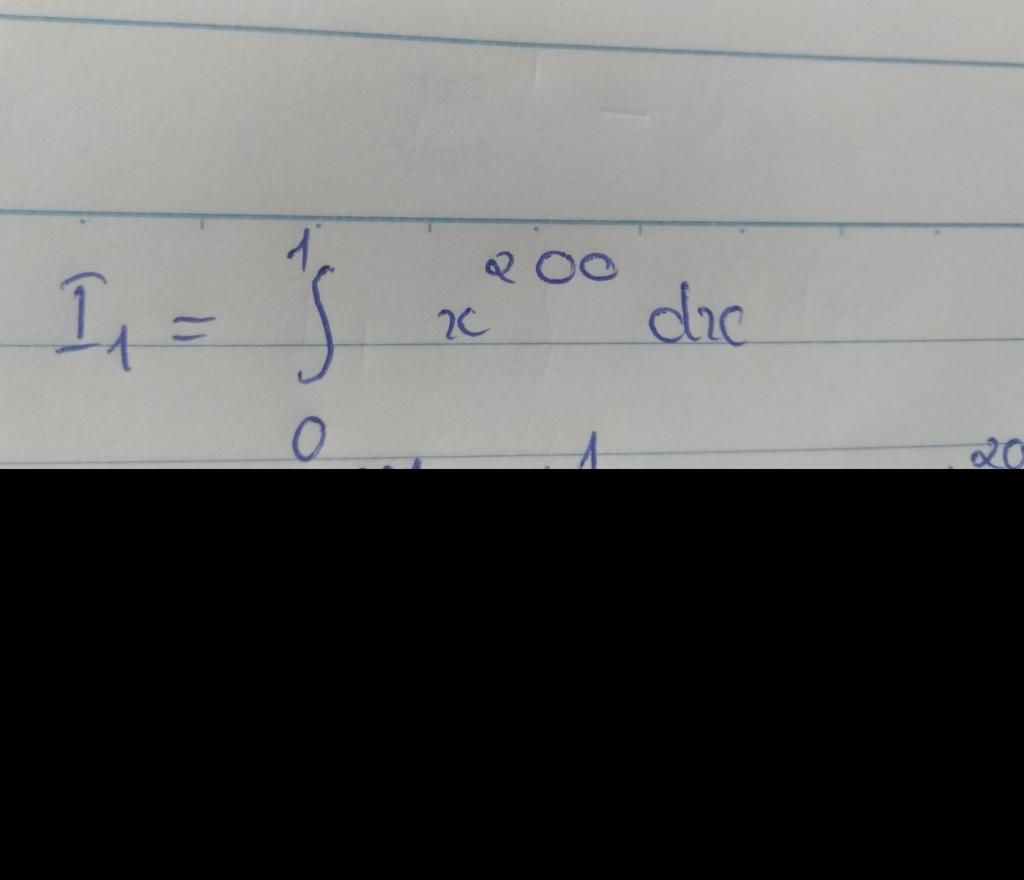 I₁ = ∫₀¹ x²⁰⁰ dx